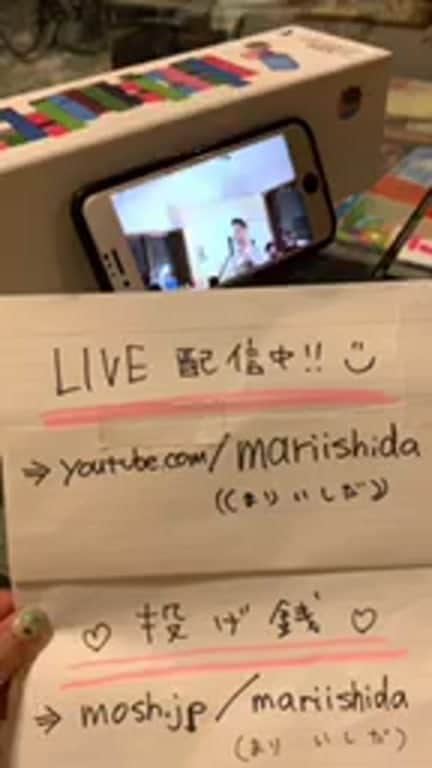 LIVE 配信中!! 
⇒ youtube.com/mariishida
((まり いしだ))
♡ 投げ銭 ♡
⇒ mosh.jp/mariishida
(まり いしだ)